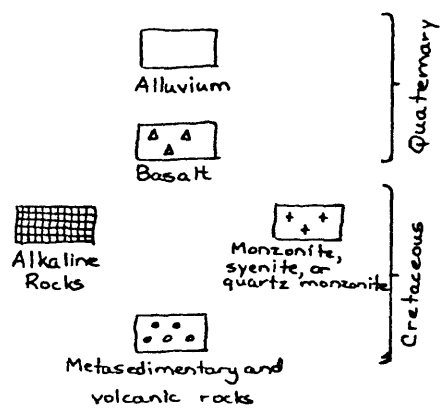 Alluvium
Basalt
Quaternary
Alkaline
Rocks
Monzonite,
syenite, or
quartz monzonite
Metasedimentary and
volcanic rocks
Cretaceous